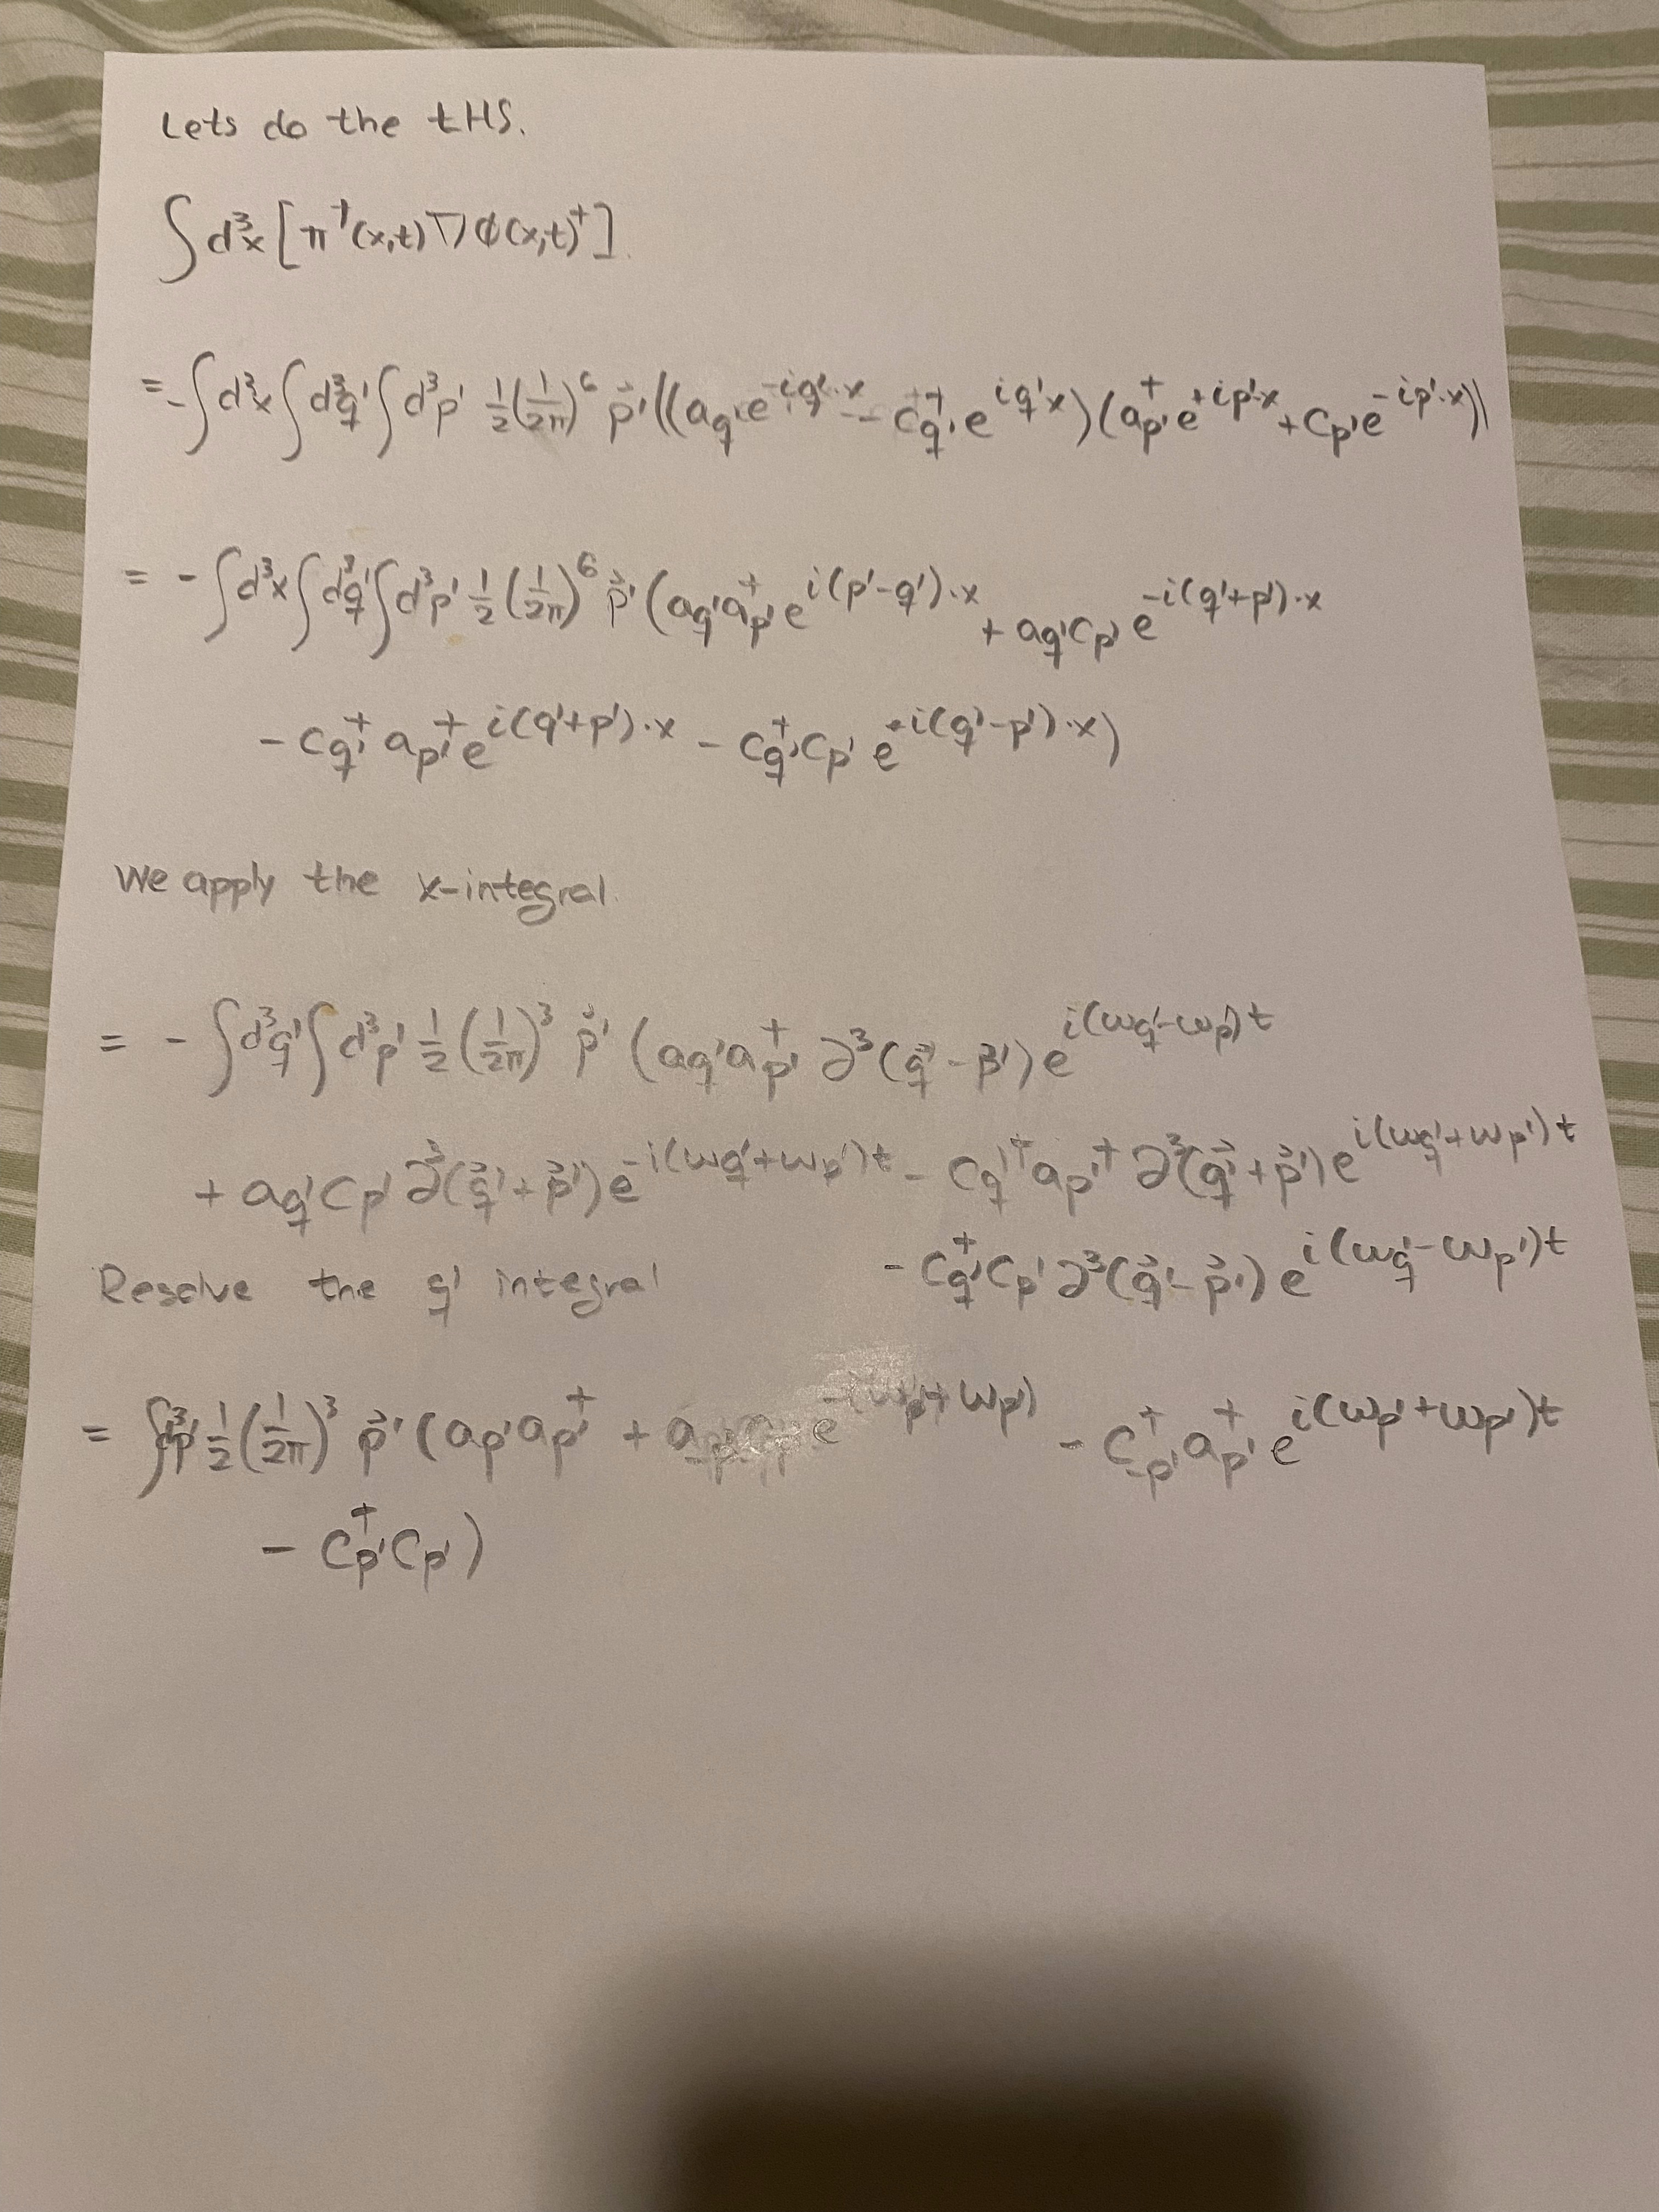 Lets do the LHS.
∫d³x [π†(x,t)∇φ(x,t)†]
= -∫d³x∫d³q'∫d³p' 1/2 (1/2π)⁶ p⃗' ((a_q' e^{-iq'·x} - c†_q' e^{iq'x})(a†_p' e^{+ip'x} + c_p' e^{-ip'·x}))
= -∫d³x∫d³q'∫d³p' 1/2 (1/2π)⁶ p⃗' (a_q' a†_p' e^{i(p'-q')·x} + a_q' c_p' e^{-i(q'+p')·x}
- c†_q' a†_p' e^{i(q'+p')·x} - c†_q' c_p' e^{+i(q'-p')·x})
We apply the x-integral.
= -∫d³q'∫d³p' 1/2 (1/2π)³ p⃗' (a_q' a†_p' ∂³(q⃗'-p⃗') e^{i(ω_q'-ω_p')t}
+ a_q' c_p' ∂³(q⃗'+p⃗') e^{-i(ω_q'+ω_p')t} - c_q'† a_p'† ∂³(q⃗'+p⃗') e^{i(ω_q'+ω_p')t}
- c†_q' c_p' ∂³(q⃗'-p⃗') e^{i(ω_q'-ω_p')t}
Resolve the q' integral
= ∫d³p' 1/2 (1/2π)³ p⃗' (a_p' a_p'† + e^{ω_p'+ω_p'} - c†_-p' a†_p' e^{i(ω_p'+ω_p')t}
- c†_p' c_p')